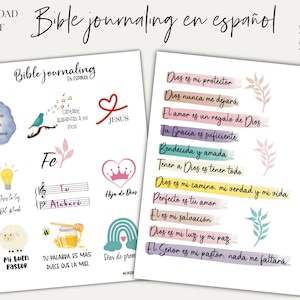 Bible journaling en español
Bible journaling
EN ESPAÑOL
JESÚS
Fe
Te
Alabaré
Hija de Dios
Mi Buen
Pastor
TU PALABRA ES MÁS
DULCE QUE LA MIEL
Dios de
Dios es mi protector
Dios nunca me dejará
El amor es un regalo de Dios
Su Gracia es suficiente
Bendecida y amada
Tener a Dios es tenerlo todo
Dios es mi camino, mi verdad y mi vida
Perfecto es tu amor
Él es mi salvación
Dios es mi luz y mi paz
El Señor es mi pastor, nada me faltará